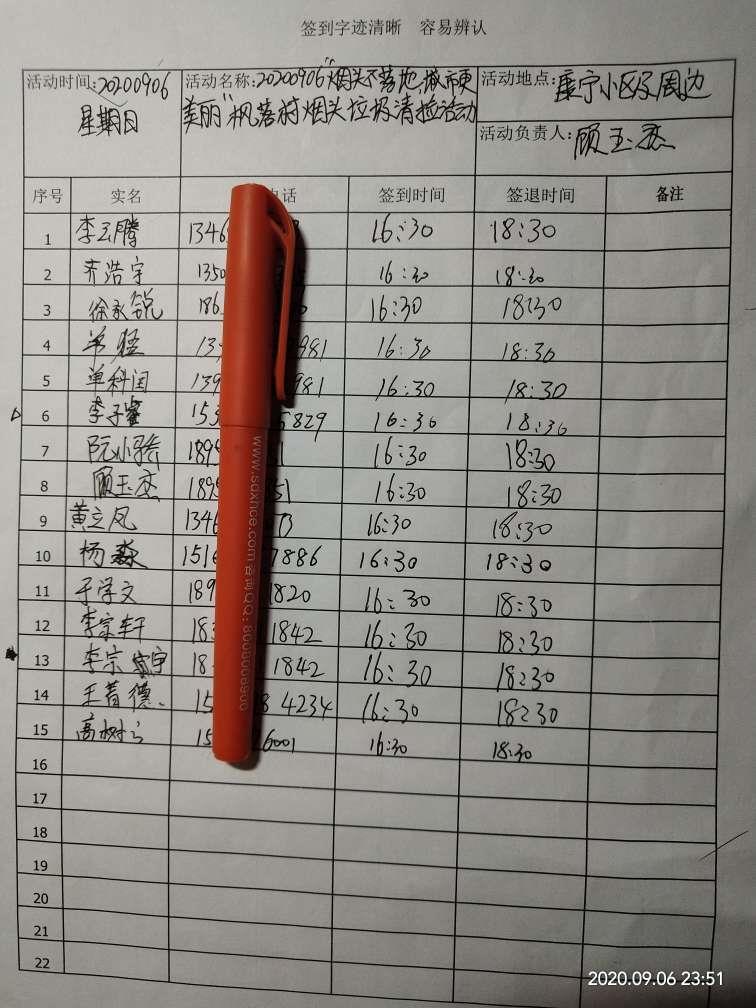 签到字迹清晰 容易辨认
活动时间:20200906 星期日
活动名称:20200906"烟头不落地,城市更美丽"枫落村烟头垃圾清捡活动
活动地点:康宁小区及周边
活动负责人:顾玉杰
序号 实名 电话 签到时间 签退时间 备注
1 李云腾 1346 16:30 18:30
2 齐浩宇 1350 16:30 18:30
3 徐永锐 186 16:30 18:30
4 13 981 16:30 18:30
5 单科闰 139 981 16:30 18:30
6 李子睿 153 5829 16:30 18:30
7 阮小骄 189 1 16:30 18:30
8 顾玉杰 189 51 16:30 18:30
9 黄立凤 1346 73 16:30 18:30
10 杨森 151 7886 16:30 18:30
11 于学文 189 1820 16:30 18:30
12 李宗轩 183 1842 16:30 18:30
13 李宗宇 18 1842 16:30 18:30
14 王首德 15 8 4234 16:30 18:30
15 高树 15 6001 16:30 18:30
16
17
18
19
20
21
22
www.sdxhce.com 咨询QQ: 8008006900
2020.09.06 23:51